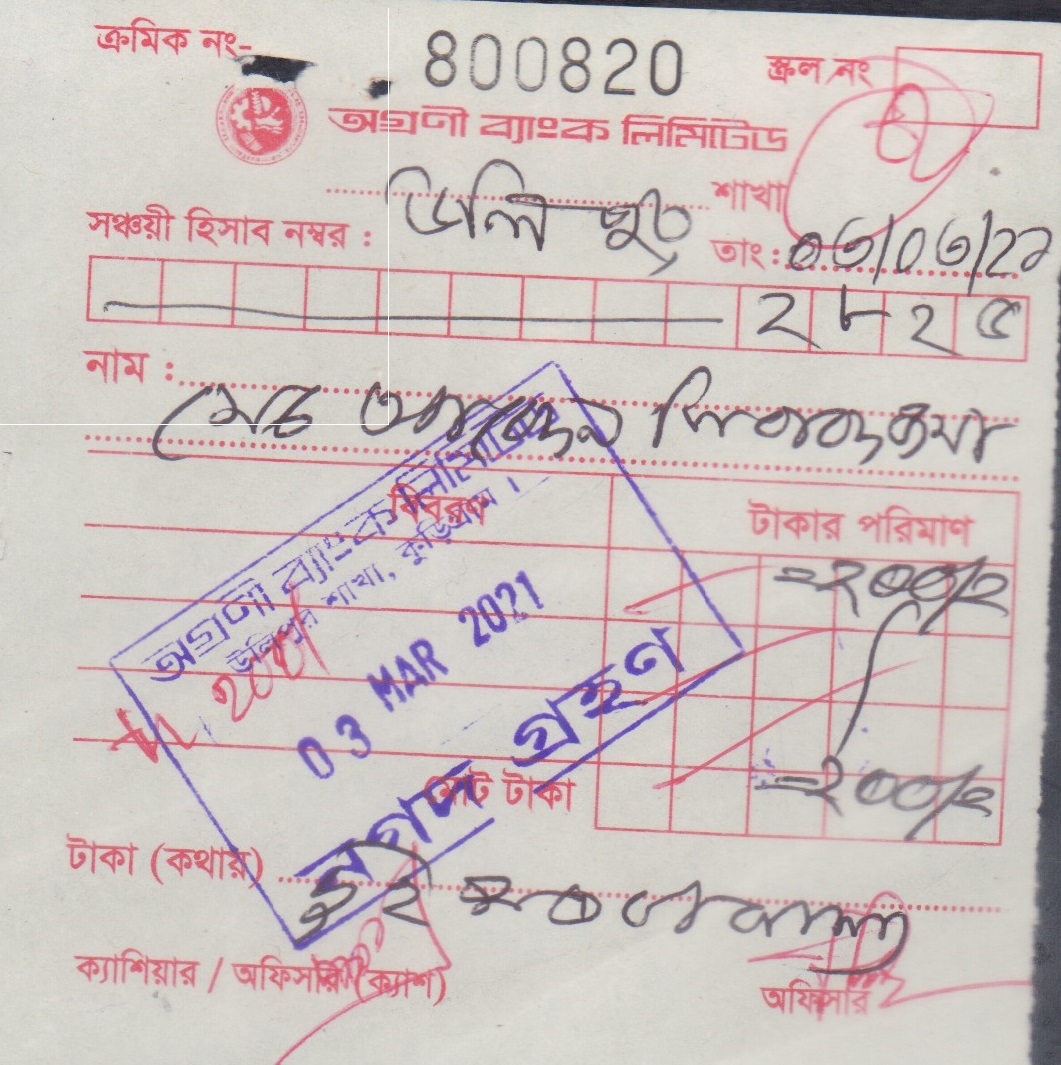 ক্রমিক নং- 800820 স্ক্রল নং
অগ্রণী ব্যাংক লিমিটেড
উলিপুর শাখা
সঞ্চয়ী হিসাব নম্বর : তাং:
২৮২৫
নাম :
মোঃ
বিবরণ টাকার পরিমাণ
=২০০/=
মোট টাকা =২০০/=
টাকা (কথায়) দুই শত টাকা
ক্যাশিয়ার / অফিসার (ক্যাশ) অফিসার
অগ্রণী ব্যাংক লিমিটেড
উলিপুর শাখা, কুড়িগ্রাম।
03 MAR 2021
নগদ গ্রহণ
২০০/